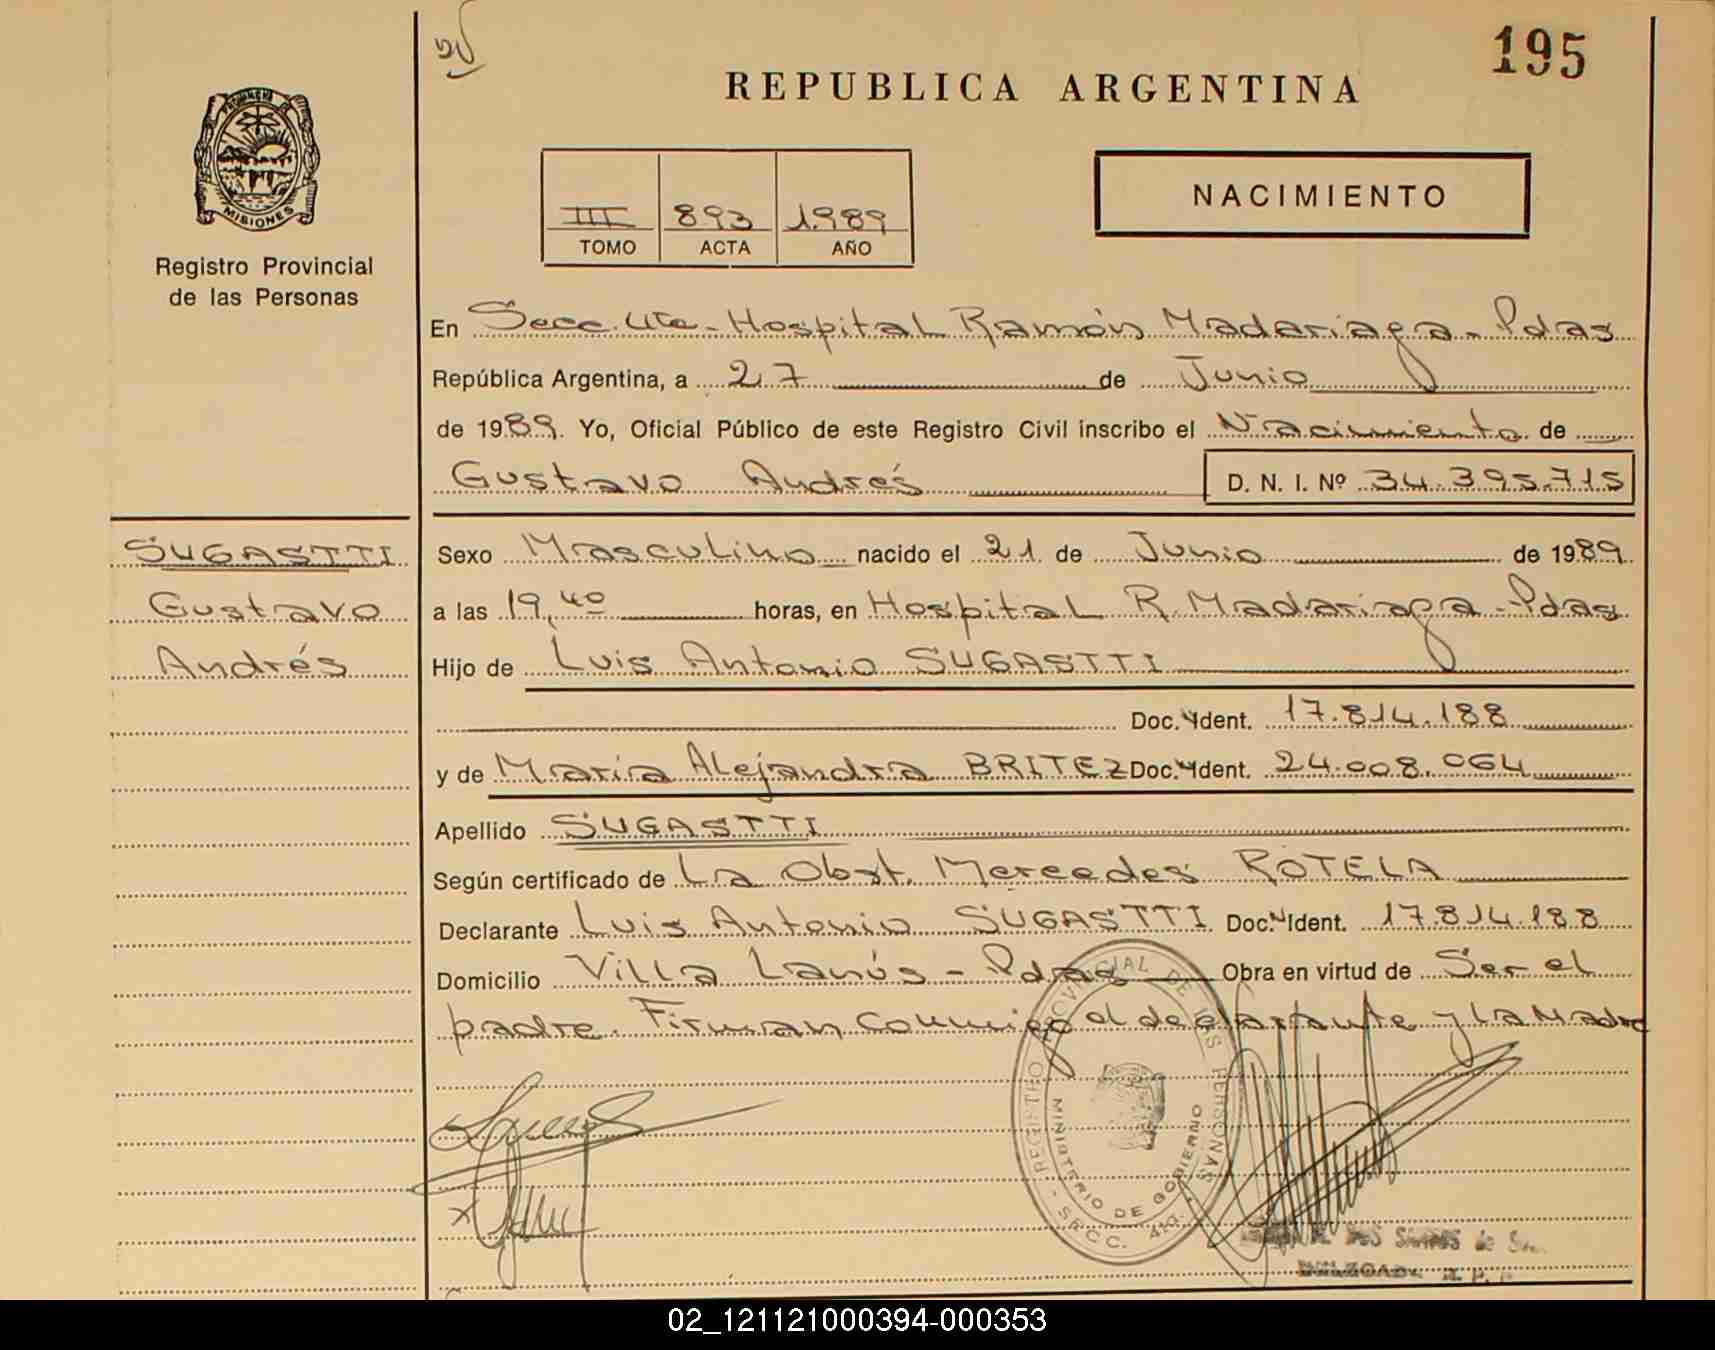 195
REPUBLICA ARGENTINA
MISIONES
Registro Provincial
de las Personas
III 893 1.989
TOMO ACTA AÑO
NACIMIENTO
En Secc. 4ta - Hospital Ramón Madariaga - Pdas
República Argentina, a 27 de Junio
de 1989. Yo, Oficial Público de este Registro Civil inscribo el Nacimiento de
Gustavo Andrés D. N. I. Nº 34.395.715
SUGASTTI
Gustavo
Andrés
Sexo Masculino nacido el 21 de Junio de 1989
a las 19,40 horas, en Hospital R. Madariaga - Pdas
Hijo de Luis Antonio SUGASTTI
Doc. Ident. 17.814.188
y de María Alejandra BRITEZ Doc. Ident. 24.008.064
Apellido SUGASTTI
Según certificado de La Obst. Mercedes ROTELA
Declarante Luis Antonio SUGASTTI Doc. Ident. 17.814.188
Domicilio Villa Lanús - Pdas Obra en virtud de Ser el
padre. Firman conmigo el declarante y la Madre
REGISTRO PROVINCIAL DE LAS PERSONAS
MINISTERIO DE GOBIERNO
SECC. 4ta.
DOS SANTOS de
02_121121000394-000353